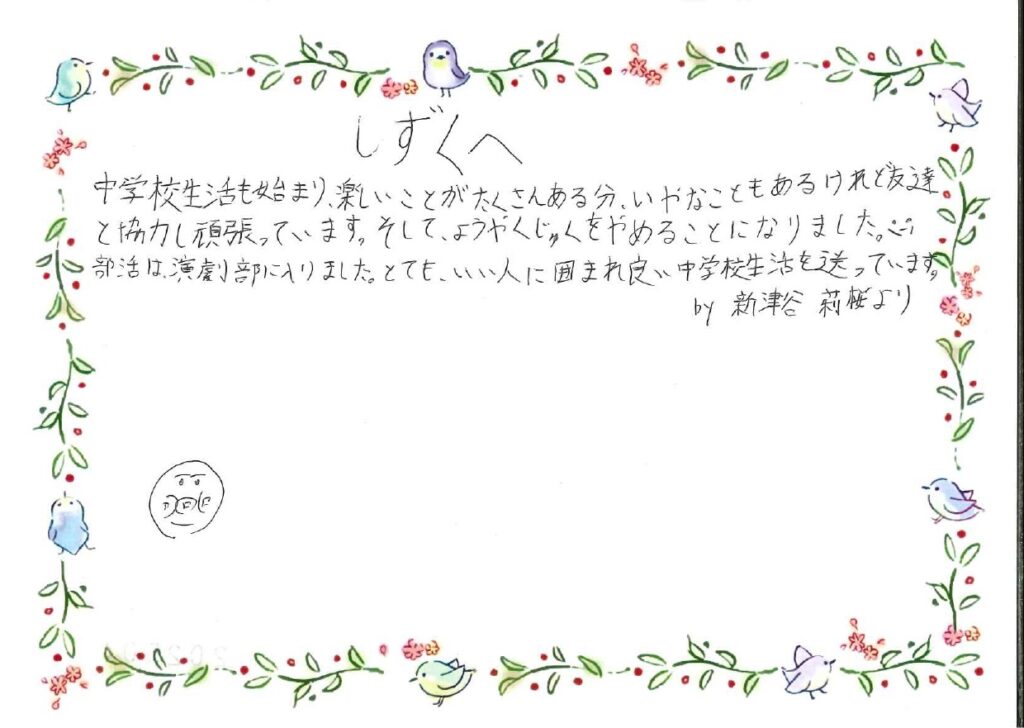 しずくへ
中学校生活も始まり、楽しいことがたくさんある分、いやなこともあるけれど友達
と協力し頑張っています。そして、ようやくじゅくをやめることになりました。
部活は、演劇部に入りました。とても、いい人に囲まれ良い中学校生活を送っています。
by 新津谷 莉桜より